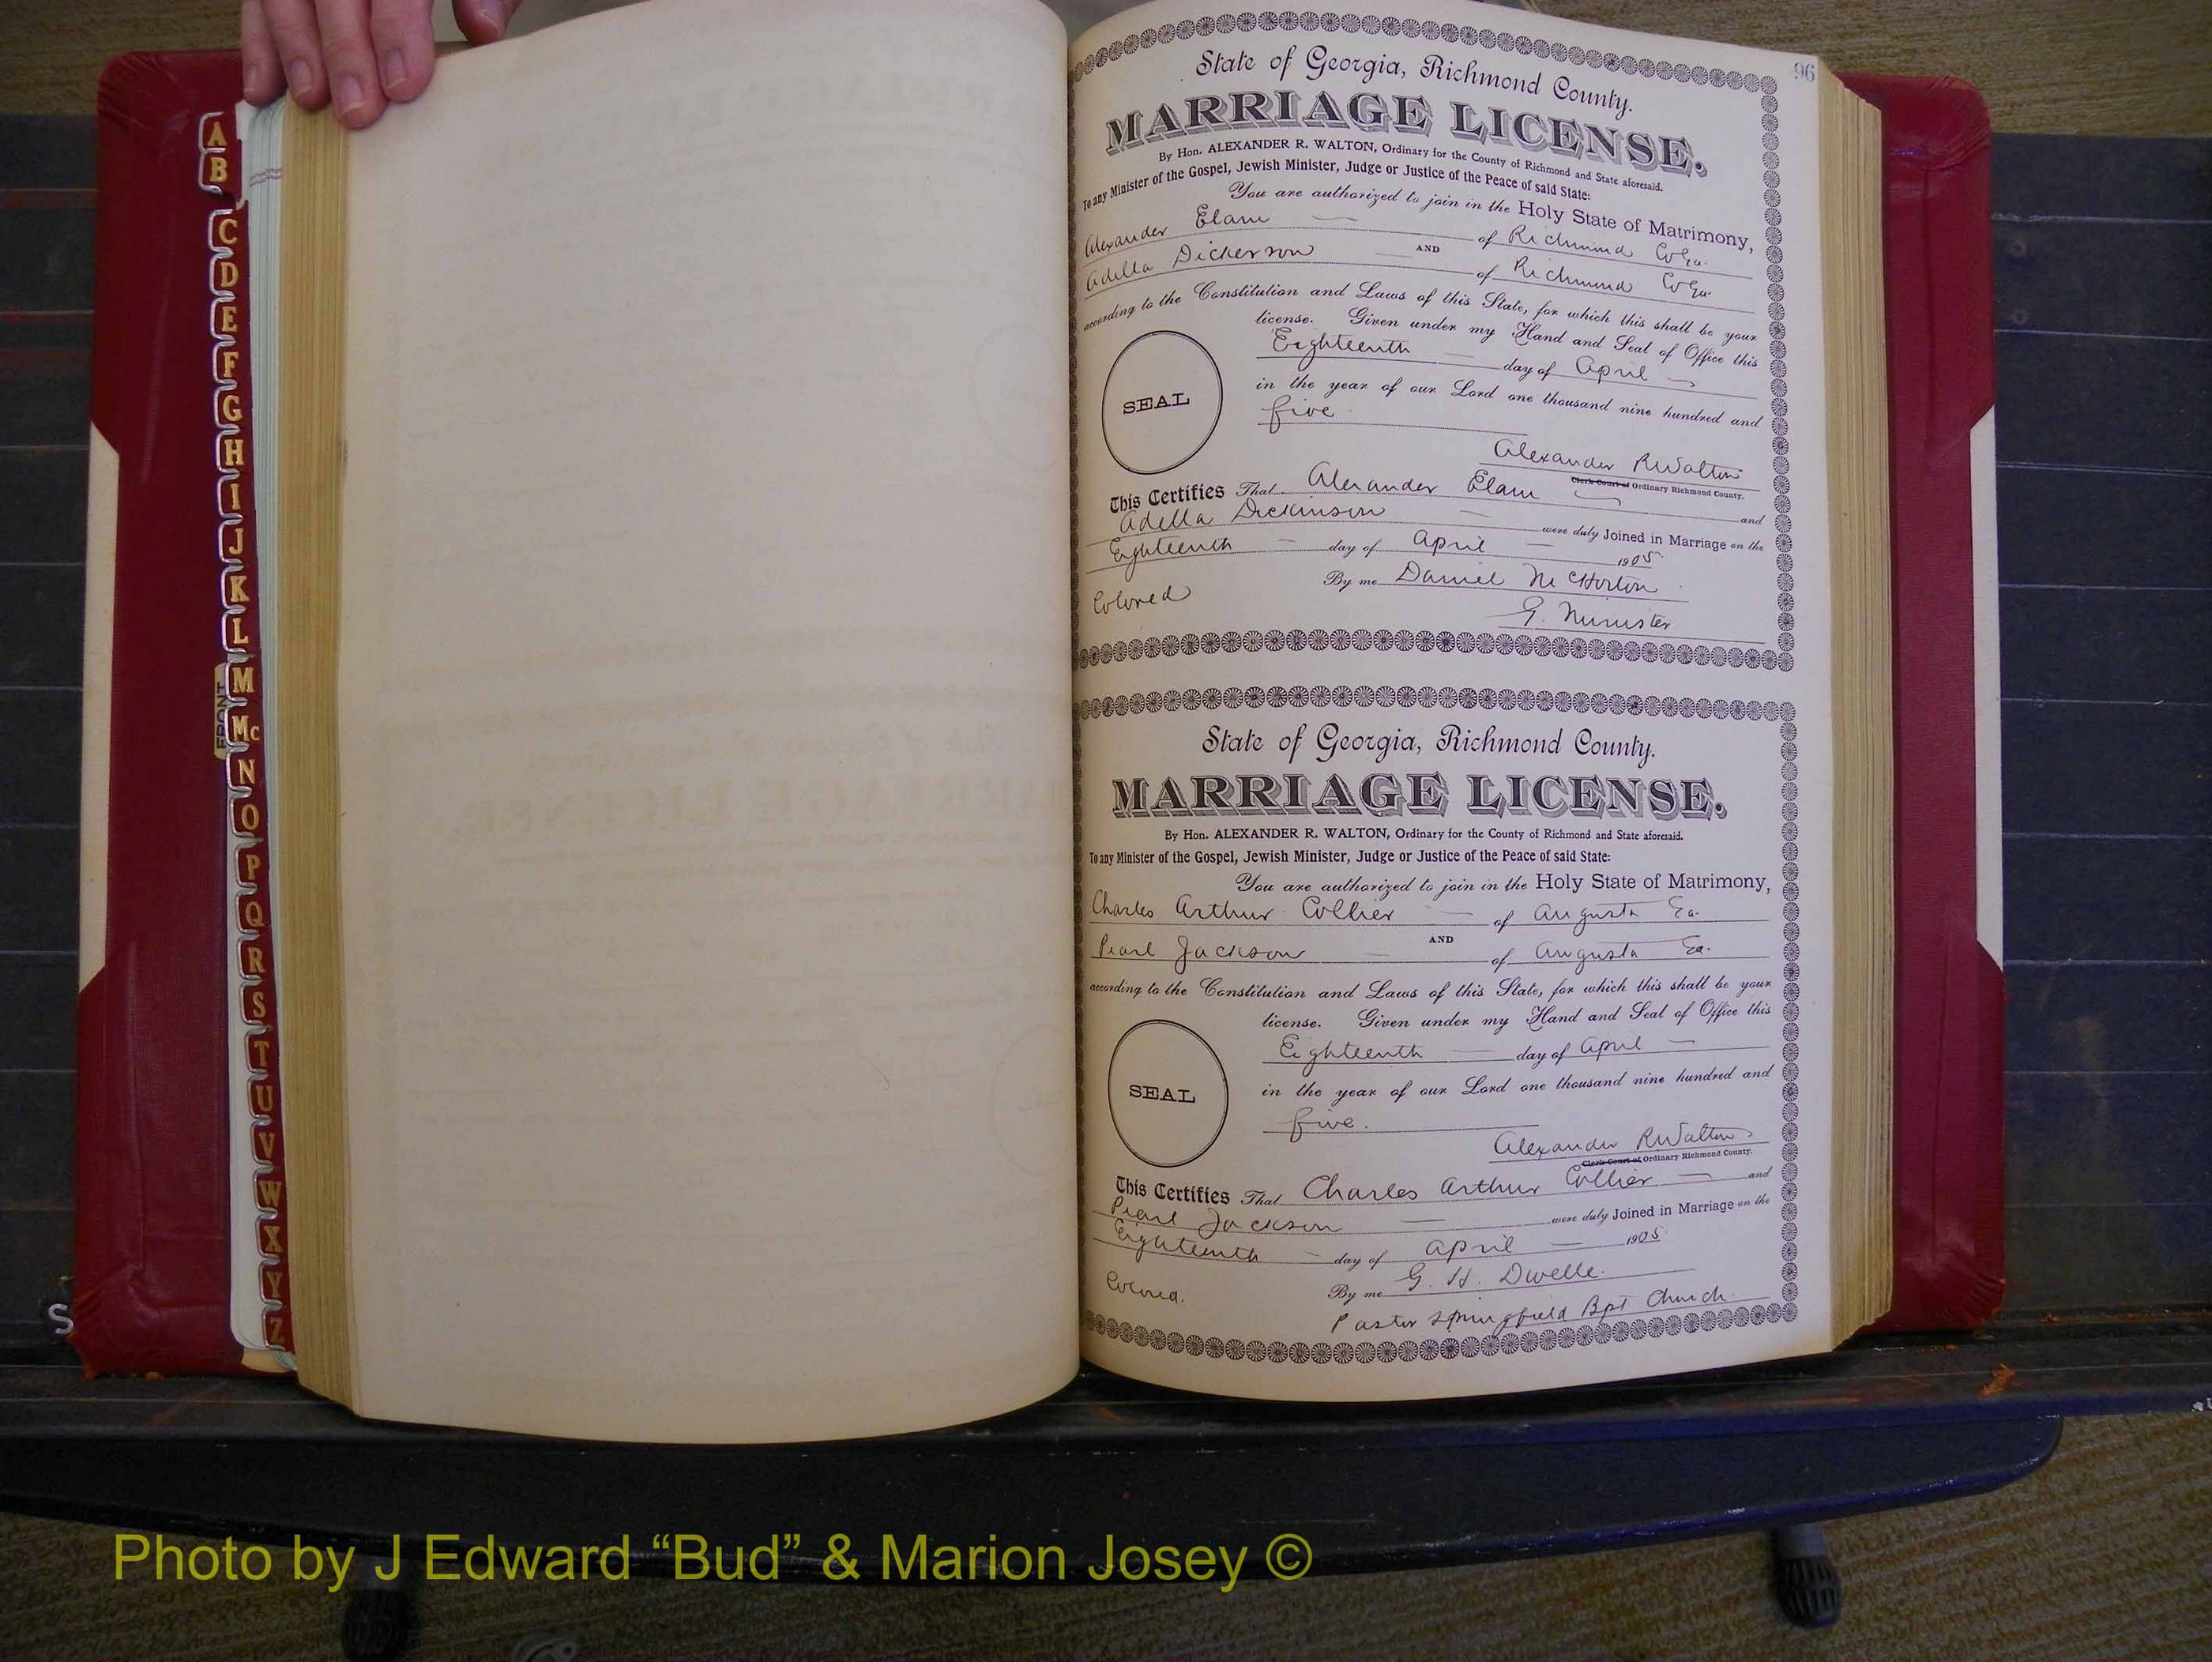 96
State of Georgia, Richmond County.
MARRIAGE LICENSE.
By Hon. ALEXANDER R. WALTON, Ordinary for the County of Richmond and State aforesaid.
To any Minister of the Gospel, Jewish Minister, Judge or Justice of the Peace of said State:
You are authorized to join in the Holy State of Matrimony,
Alexander Elam — of Richmond Co Ga.
AND
Adella Dickerson — of Richmond Co Ga.
according to the Constitution and Laws of this State, for which this shall be your
license. Given under my Hand and Seal of Office this
Eighteenth — day of April —
in the year of our Lord one thousand nine hundred and
five
SEAL
Alexander R Walton
Clerk Court of Ordinary Richmond County.
This Certifies That Alexander Elam — and
Adella Dickinson — were duly Joined in Marriage on the
Eighteenth — day of April — 1905.
Colored
By me Daniel McHorton
G. Minister
State of Georgia, Richmond County.
MARRIAGE LICENSE.
By Hon. ALEXANDER R. WALTON, Ordinary for the County of Richmond and State aforesaid.
To any Minister of the Gospel, Jewish Minister, Judge or Justice of the Peace of said State:
You are authorized to join in the Holy State of Matrimony,
Charles Arthur Collier — of Augusta Ga.
AND
Pearl Jackson — of Augusta Ga.
according to the Constitution and Laws of this State, for which this shall be your
license. Given under my Hand and Seal of Office this
Eighteenth — day of April —
in the year of our Lord one thousand nine hundred and
five.
SEAL
Alexander R Walton
Clerk Court of Ordinary Richmond County.
This Certifies That Charles Arthur Collier — and
Pearl Jackson — were duly Joined in Marriage on the
Eighteenth — day of April — 1905.
Colored.
By me G. H. Dwelle.
Pastor Springfield Bpt Church.
A
B
C
D
E
F
G
H
I
J
K
L
M
Mc
N
O
P
Q
R
S
T
U
V
W
X
Y
Z
FRONT
S
Photo by J Edward “Bud” & Marion Josey ©